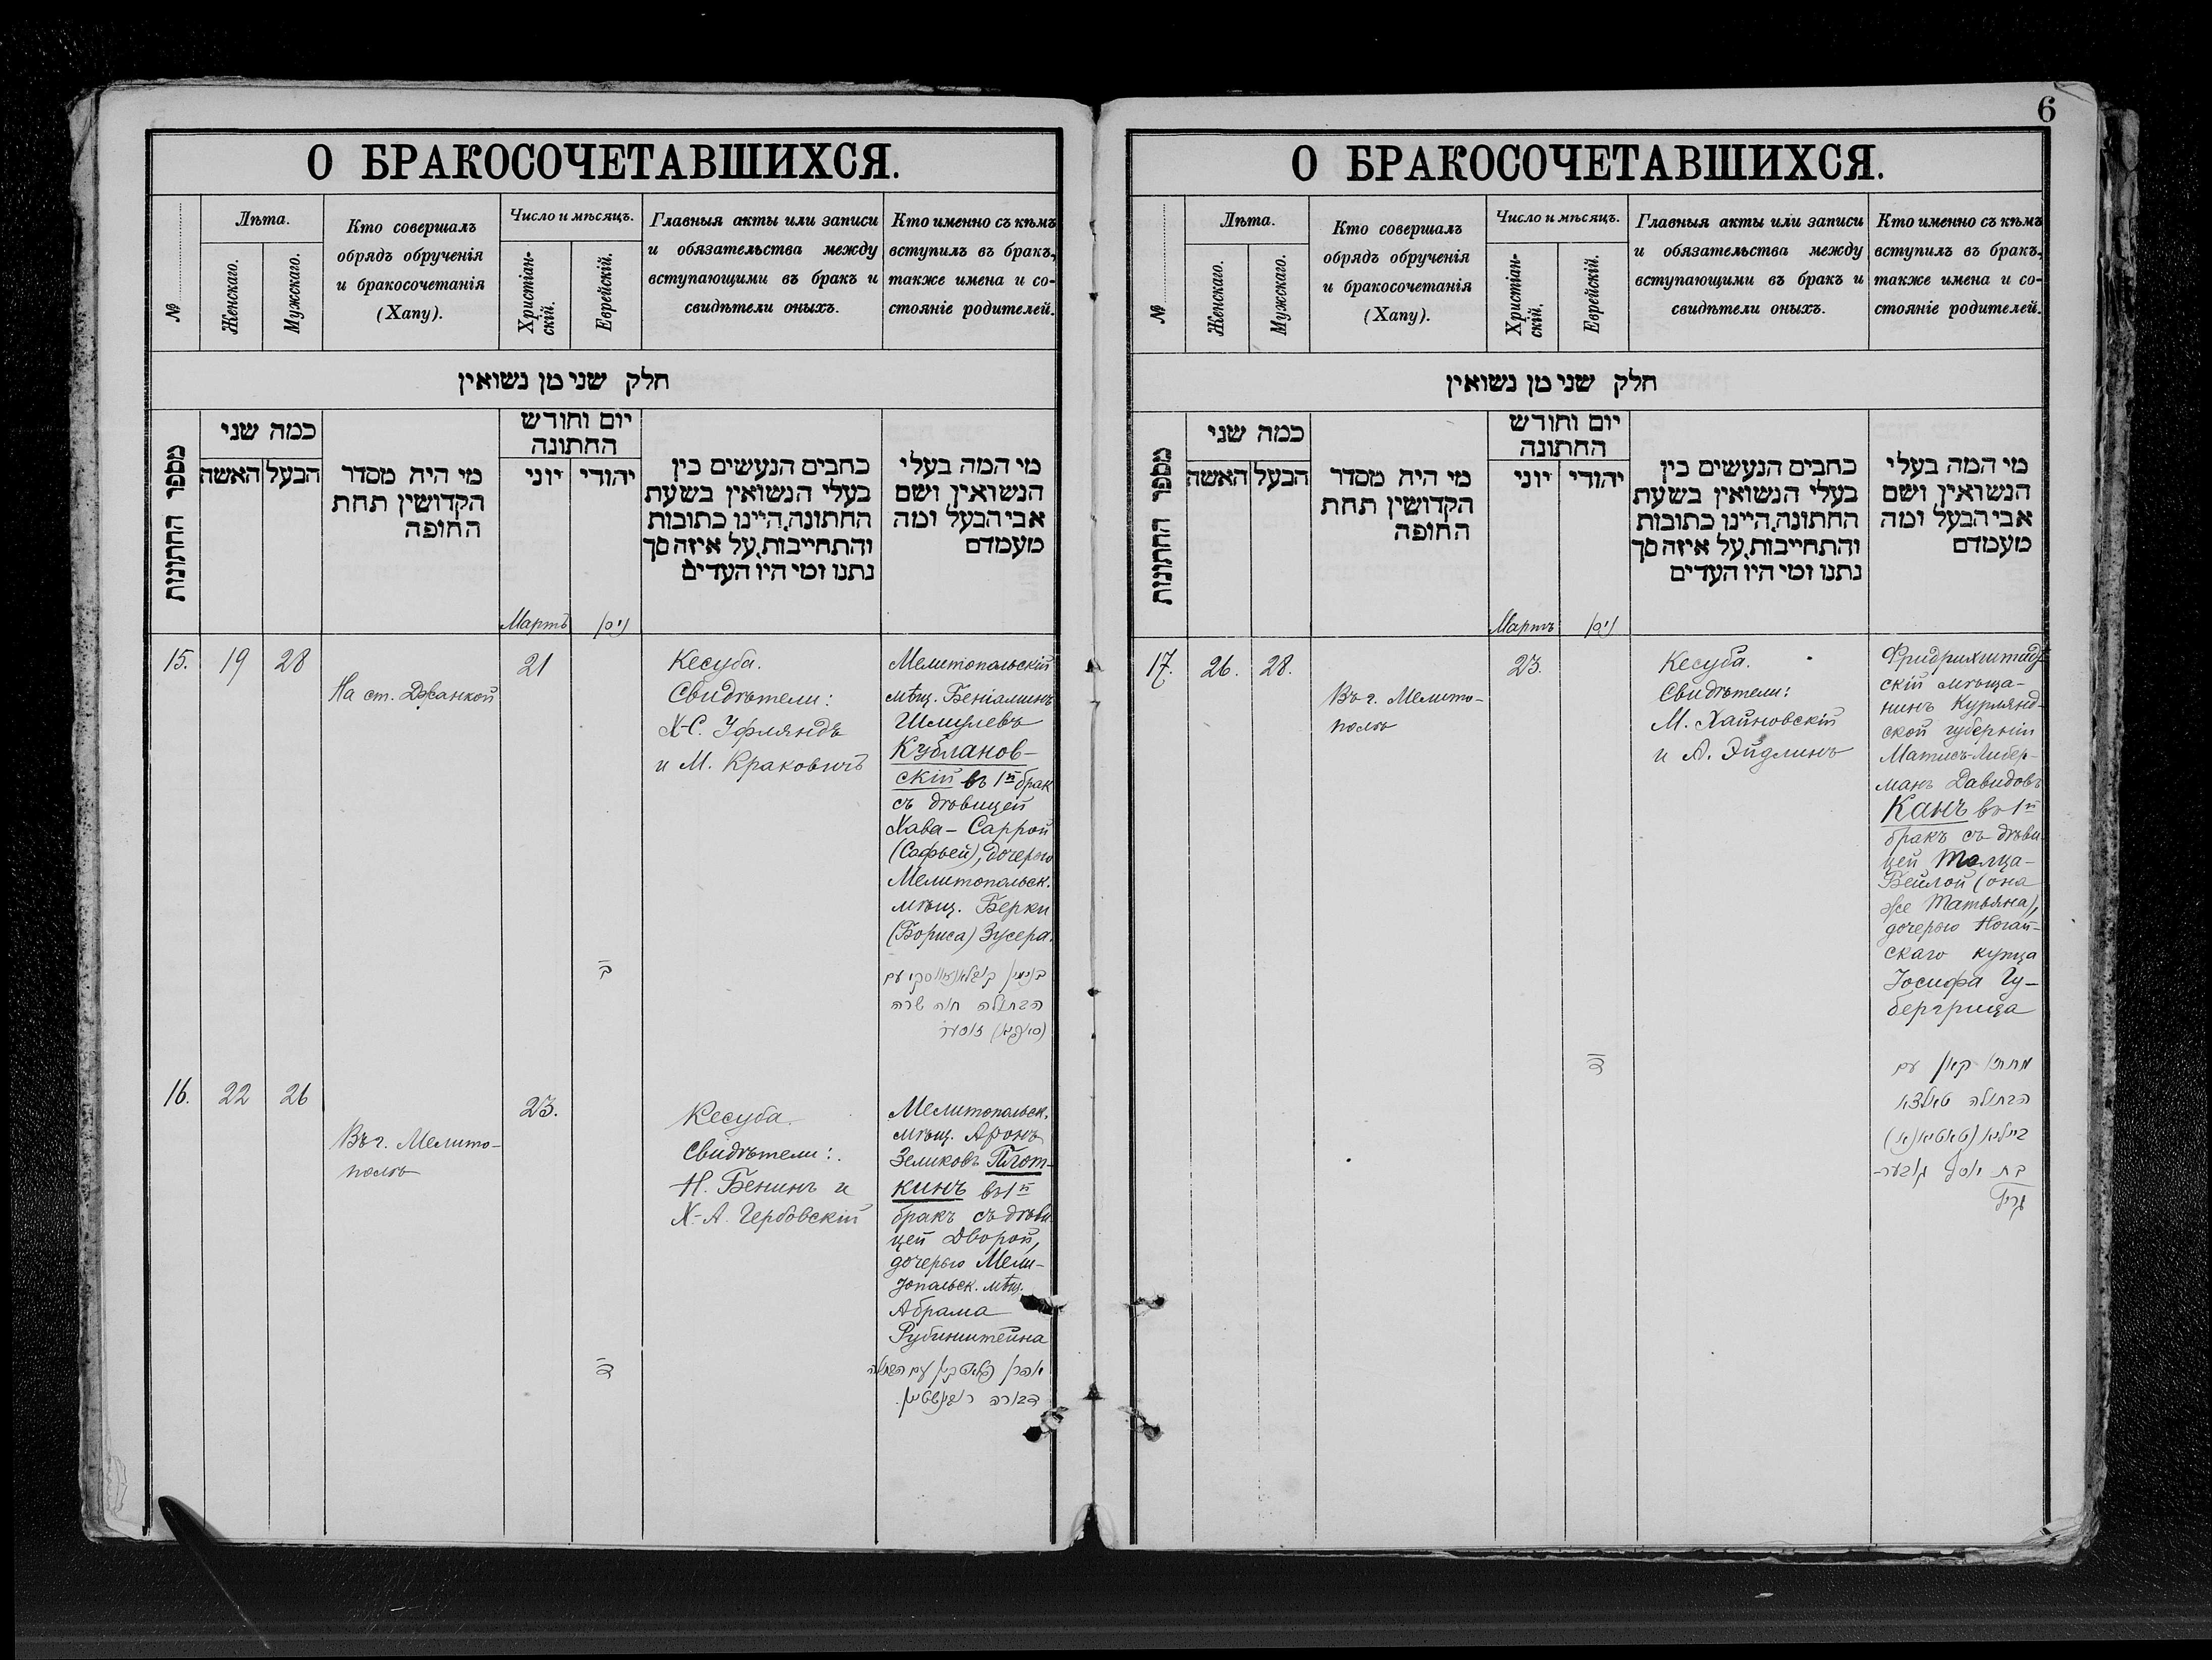 О БРАКОСОЧЕТАВШИХСЯ.
№
Лѣта.
Женскаго.
Мужскаго.
Кто совершалъ
обрядъ обрученія
и бракосочетанія
(Хапу).
Число и мѣсяцъ.
Христіан-
скій.
Еврейскій.
Главныя акты или записи
и обязательства между
вступающими въ бракъ и
свидѣтели оныхъ.
Кто именно съ кѣмъ
вступилъ въ бракъ,
также имена и со-
стояніе родителей.
חלק שני מן נשואין
מספר החתונות
כמה שני
האשה
הבעל
מי היה מסדר
הקדושין תחת
החופה
יום וחודש
החתונה
יוני
יהודי
כתבים הנעשים בין
בעלי הנשואין בשעת
החתונה, היינו כתובות
והתחייבות, על איזה סך
נתנו ומי היו העדים
מי המה בעלי
הנשואין ושם
אבי הבעל ומה
מעמדם
Мартъ
ניסן
15.
19
28
На ст. Джанкой
21
ב
Кесуба.
Свидѣтели:
Х-С. Уфляндъ
и М. Краковичъ
Мелитопольскій
мѣщ. Беніаминъ
Шмулевъ
Кублановъ-
скій въ 1й брак
съ дѣвицей
Хава-Саррой
(Софьей), дочерью
Мелитопольск.
мѣщ. Берки
(Бориса) Зусера.
בנימין קובלאנאווסקי עם
הבתולה חוה שרה
(סאפיא) זוסער
16.
22
26
Въ г. Мелито-
полѣ
23.
ד
Кесуба.
Свидѣтели:
Н. Бенинъ и
Х-А. Гербовскій
Мелитопольск.
мѣщ. Аронъ
Зеликовъ Плот-
кинъ въ 1й
бракъ съ дѣви
цей Дворой,
дочерью Мели-
топольск. мѣщ.
Абрама
Рубинштейна
אהרן פלאטקין עם הבתולה
דבורה רובינשטיין.
6
О БРАКОСОЧЕТАВШИХСЯ.
№
Лѣта.
Женскаго.
Мужскаго.
Кто совершалъ
обрядъ обрученія
и бракосочетанія
(Хапу).
Число и мѣсяцъ.
Христіан-
скій.
Еврейскій.
Главныя акты или записи
и обязательства между
вступающими въ бракъ и
свидѣтели оныхъ.
Кто именно съ кѣмъ
вступилъ въ бракъ,
также имена и со-
стояніе родителей.
חלק שני מן נשואין
מספר החתונות
כמה שני
האשה
הבעל
מי היה מסדר
הקדושין תחת
החופה
יום וחודש
החתונה
יוני
יהודי
כתבים הנעשים בין
בעלי הנשואין בשעת
החתונה, היינו כתובות
והתחייבות, על איזה סך
נתנו ומי היו העדים
מי המה בעלי
הנשואין ושם
אבי הבעל ומה
מעמדם
Мартъ
ניסן
17.
26.
28.
Въ г. Мелито-
полѣ
23.
ד
Кесуба.
Свидѣтели:
М. Хайновскій
и А. Эйдлинъ
Фридрихштадт
скій мѣща-
нинъ Курлянд-
ской губерніи
Матисъ-Либер-
манъ Давидовъ
Канъ въ 1й
бракъ съ дѣви
цей Толца-
Бейлой (она
же Татьяна),
дочерью Ногай-
скаго купца
Іосифа Гу-
бергрица
מתתי' קאן עם
הבתולה טאלצא
ביילא (טאטיאנא)
בת יוסף גובער-
גריץ